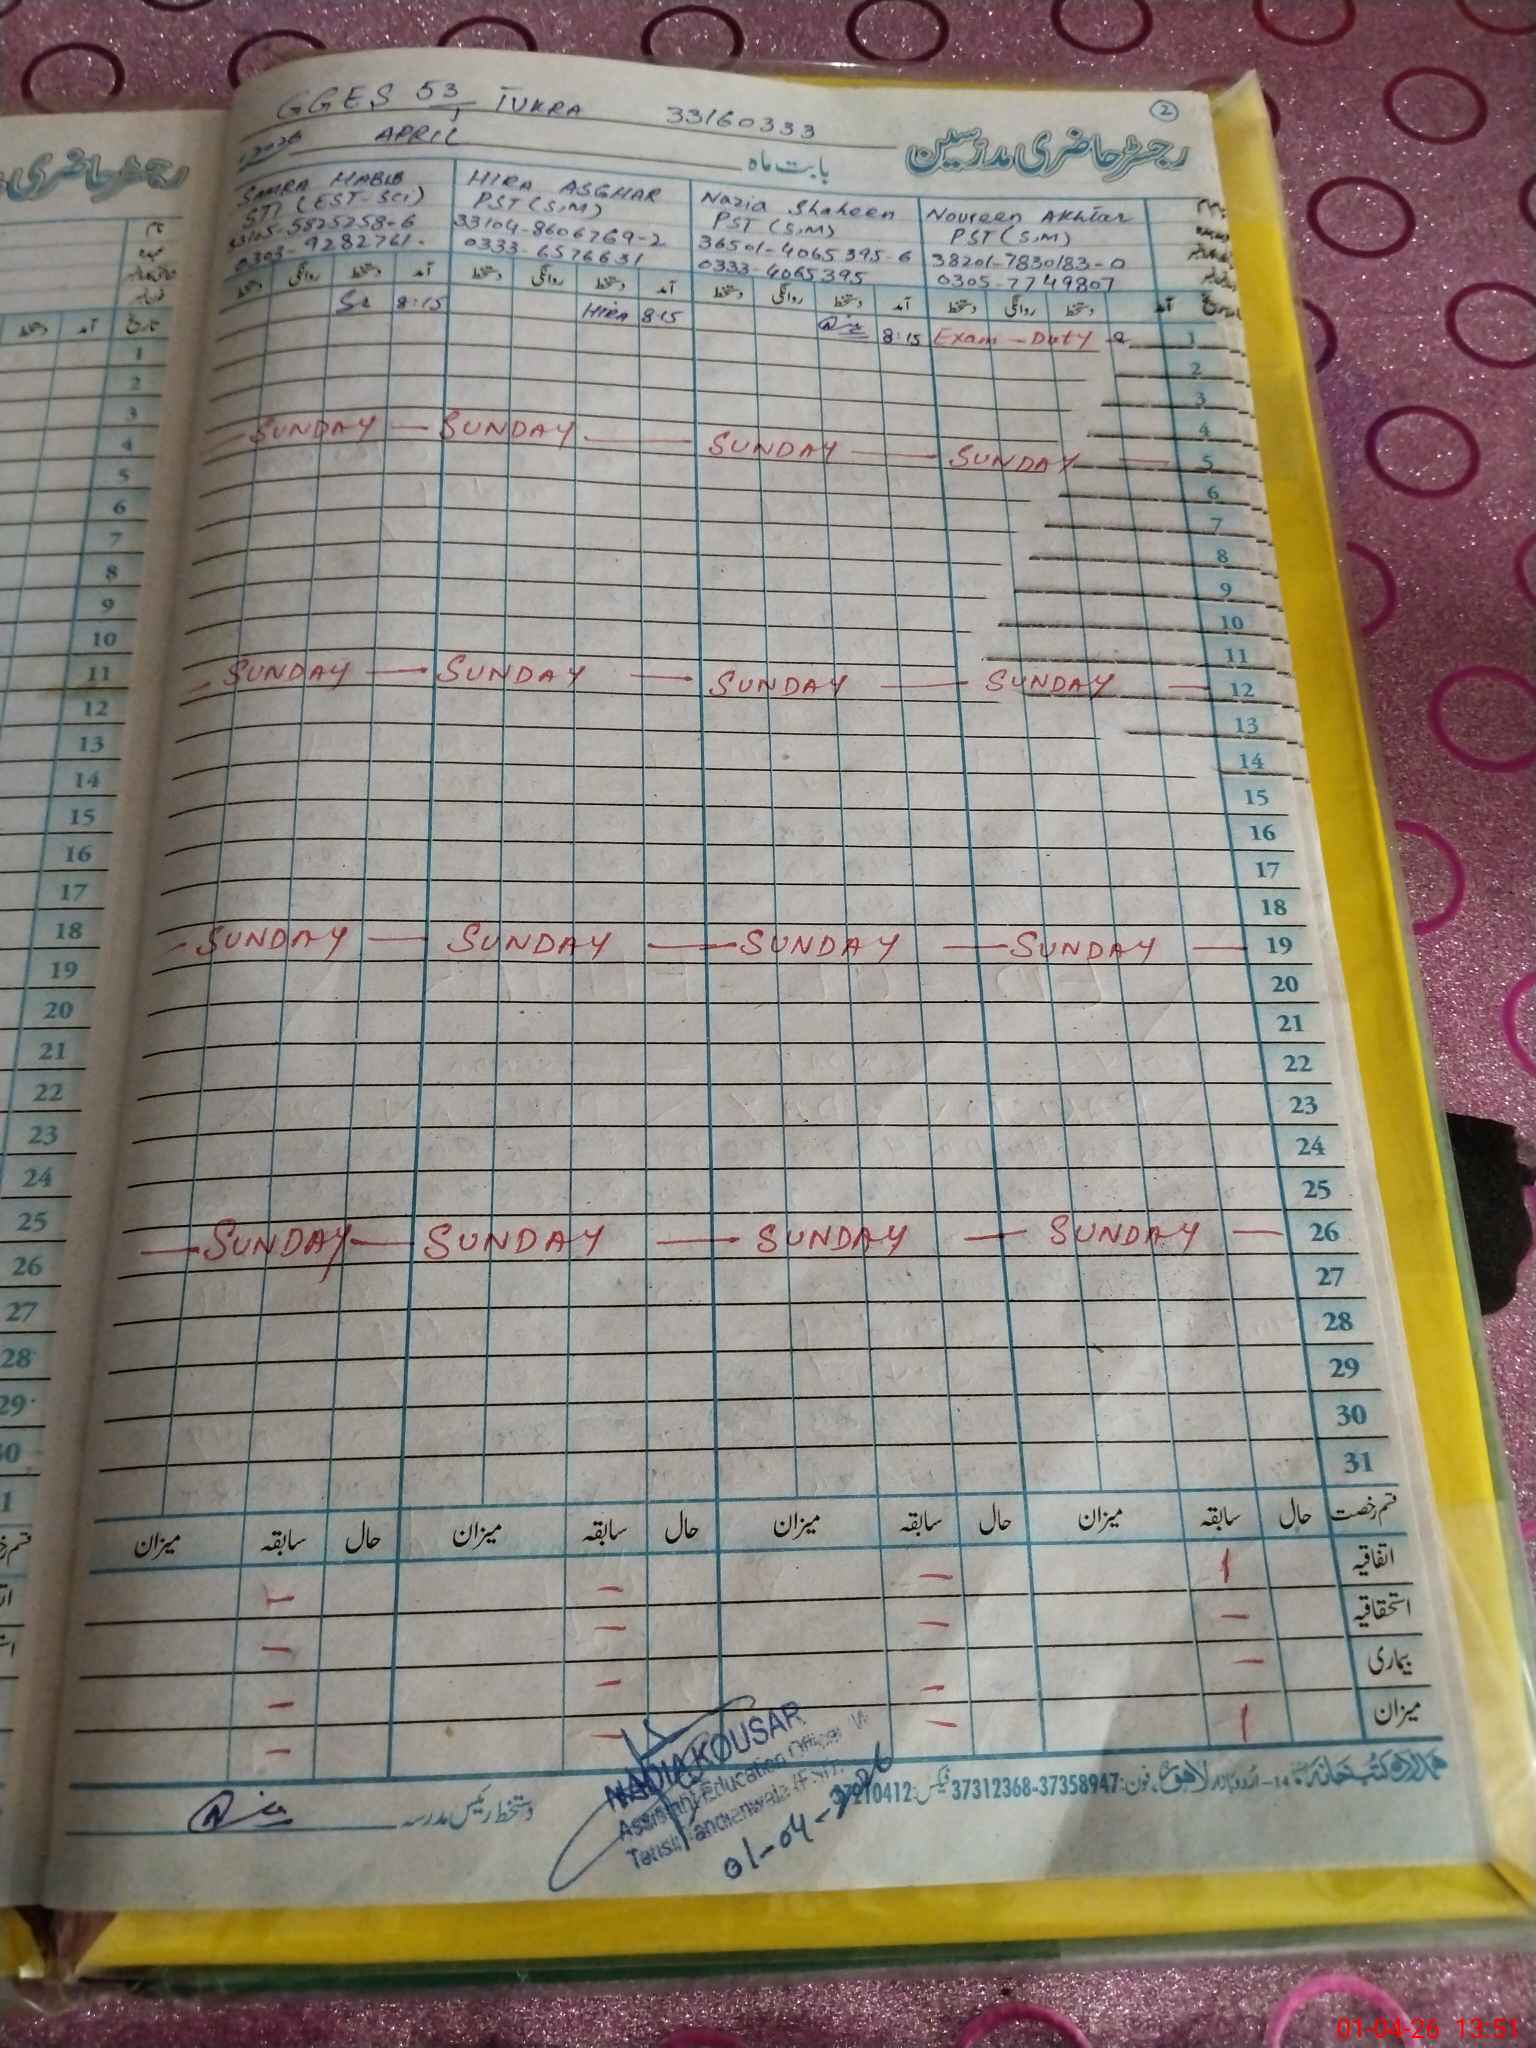 GGES 53 TUKRA 33160333
2
2026 APRIL بابت ماہ رجسٹر حاضری مدرسین
SAMRA HABIB HIRA ASGHAR Nazia Shaheen Noureen Akhtar
STI (EST-Sci) PST (S,M) PST (S,M) PST (S,M)
33105-5825258-6 33104-8606769-2 36501-4065395-6 38201-7830183-0
0303-9282761 0333-6576631 0333-4065395 0305-7749807
دستخط روانگی دستخط آمد دستخط روانگی دستخط آمد دستخط روانگی دستخط آمد دستخط روانگی دستخط آمد تاریخ
8:15 HIRA 8:15 8:15 Exam - Duty 1
2
3
4
SUNDAY SUNDAY SUNDAY SUNDAY 5
6
7
8
9
10
11
SUNDAY SUNDAY SUNDAY SUNDAY 12
13
14
15
16
17
18
SUNDAY SUNDAY SUNDAY SUNDAY 19
20
21
22
23
24
25
SUNDAY SUNDAY SUNDAY SUNDAY 26
27
28
29
30
31
میزان سابقہ حال میزان سابقہ حال میزان سابقہ حال میزان سابقہ حال قسم رخصت
– – – 1 اتفاقیہ
– – – – استحقاقیہ
– – – – بیماری
– – – 1 میزان
دستخط رئیس مدرسہ
NADIA KOUSAR
Assistant Education Officer W
01-04-2026
فون: 37358947-37312368 فیکس: 37210412
رجسٹر حاضری
آمد دستخط تاریخ
1
2
3
4
5
6
7
8
9
10
11
12
13
14
15
16
17
18
19
20
21
22
23
24
25
26
27
28
29
30
01-04-26 13:51